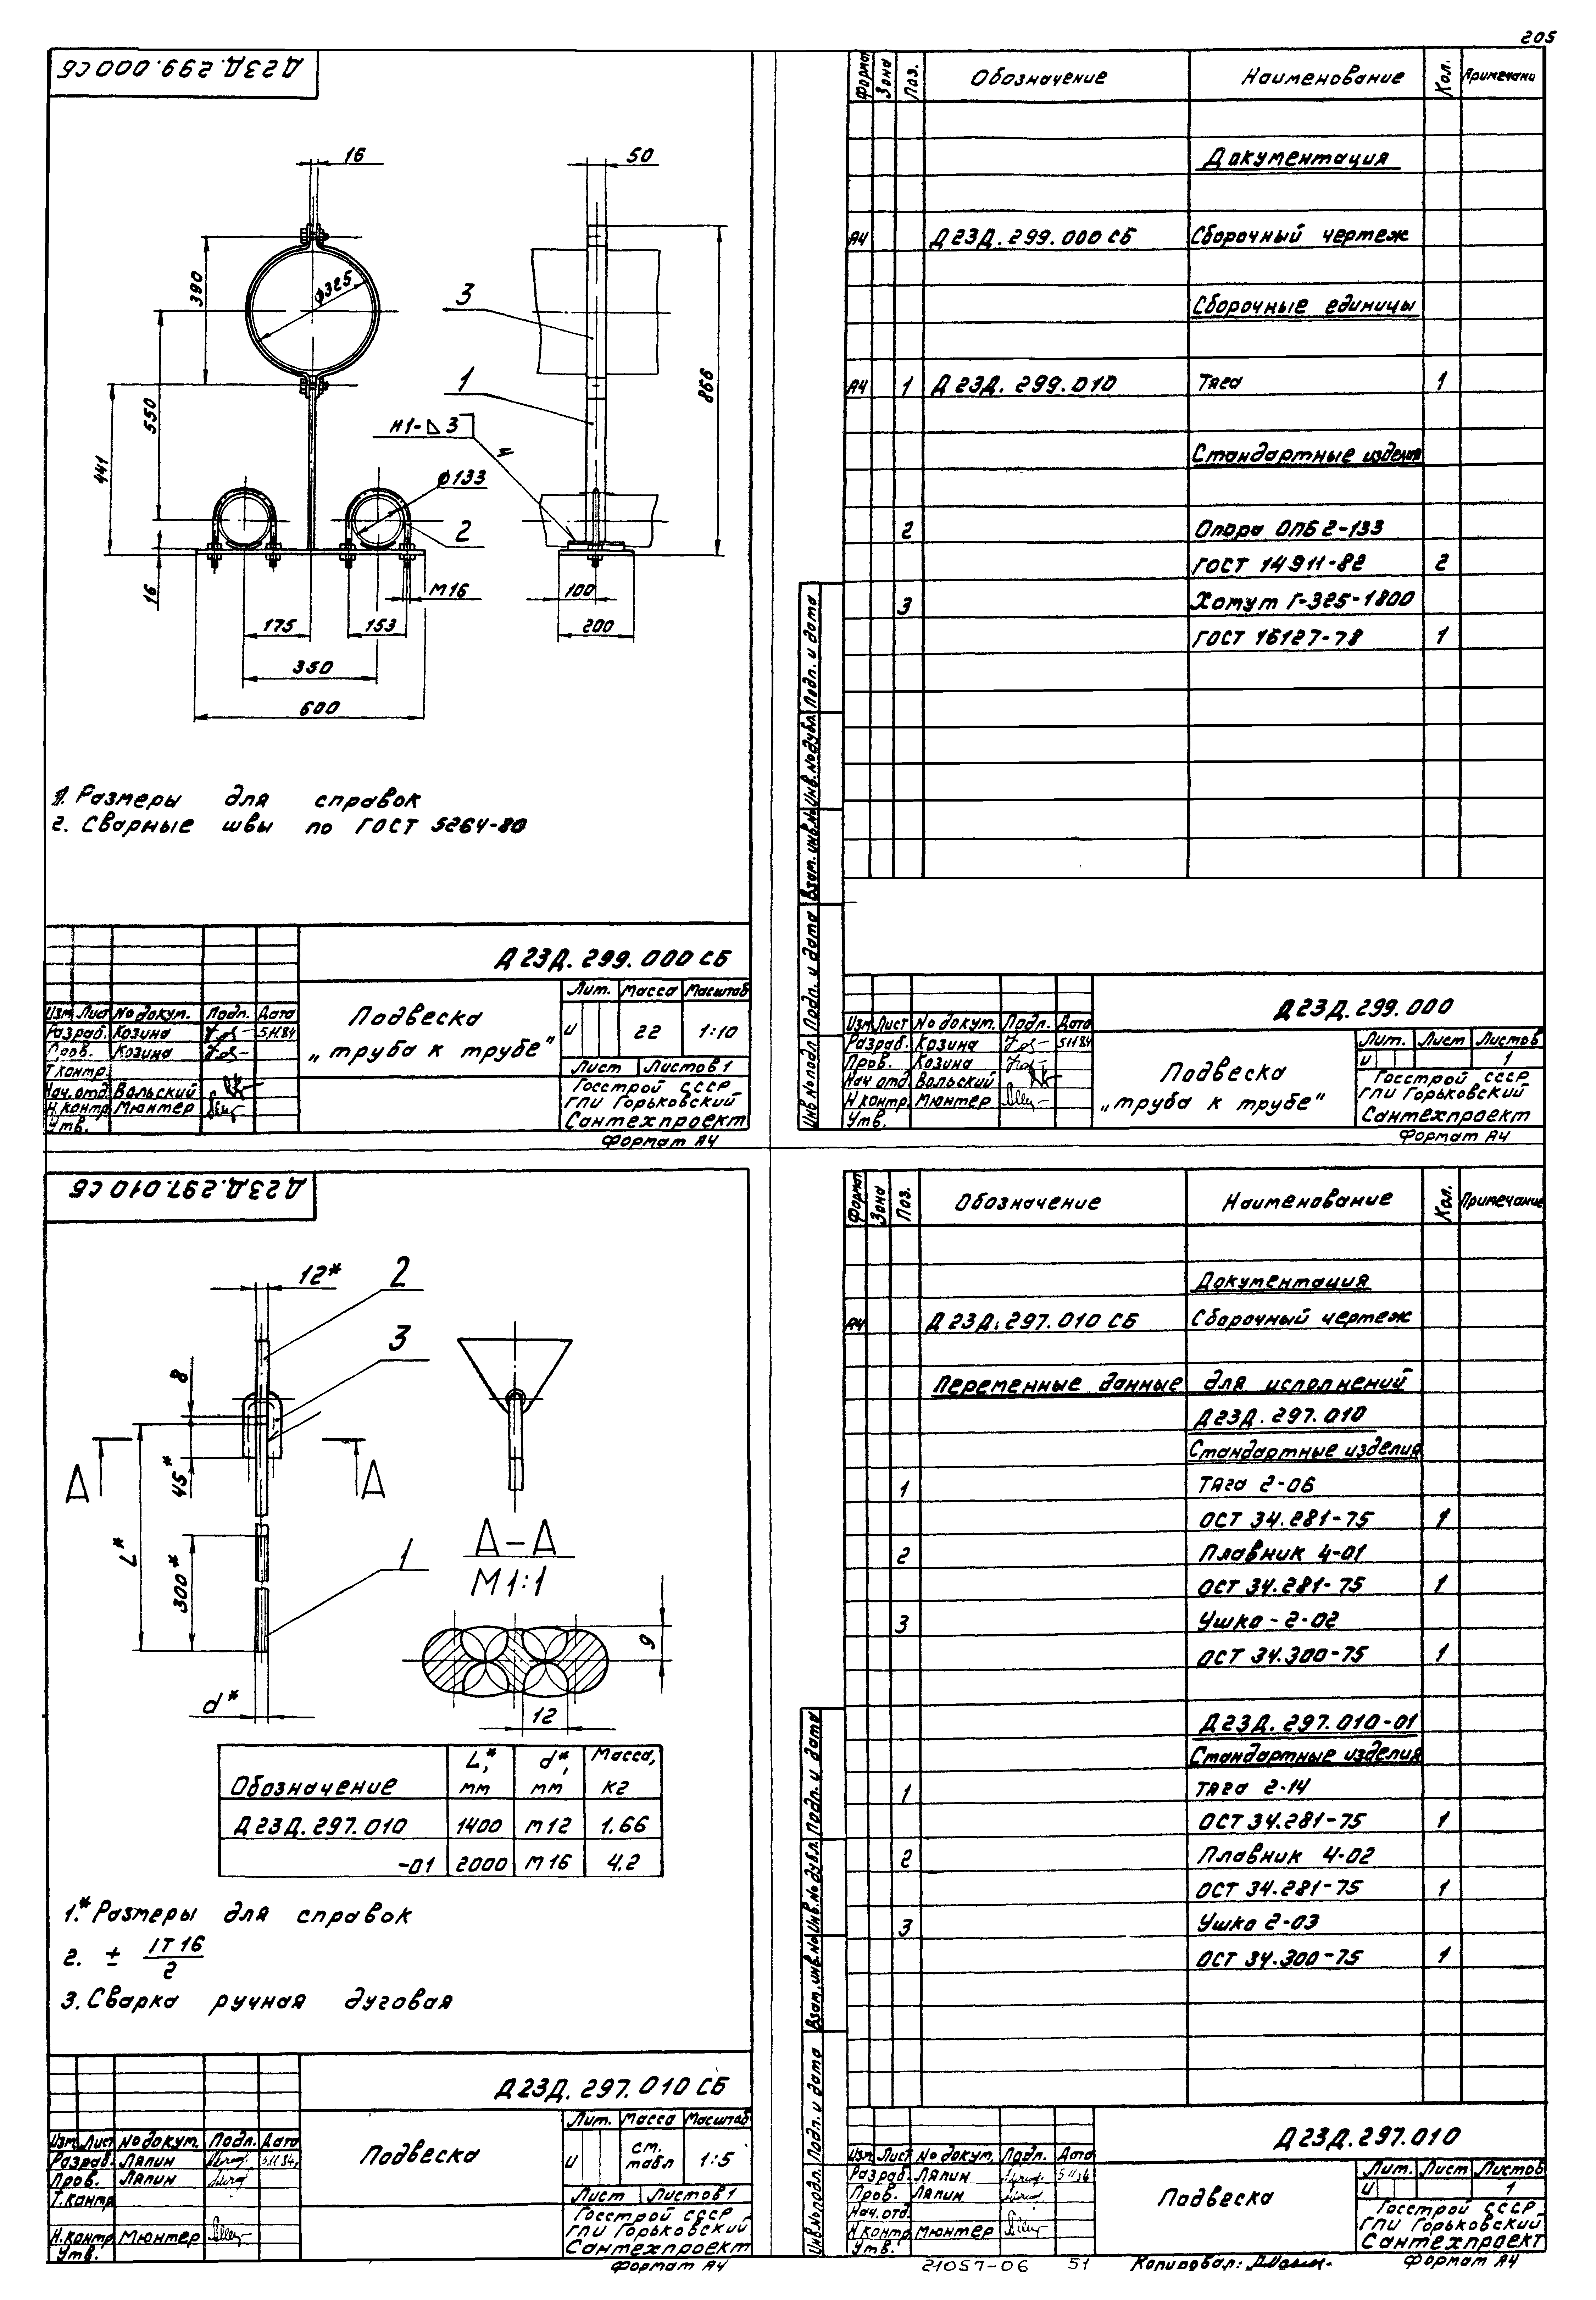 205
Д23Д.299.000 СБ
16
50
390
ϕ325
550
441
3
1
866
Н1-◺3
ϕ133
2
М16
16
175
153
350
600
100
200
1. Размеры для справок
2. Сварные швы по ГОСТ 5264-80
Д23Д.299.000 СБ
Подвеска
„труба к трубе"
Лит. Масса Масштаб
И 22 1:10
Лист Листов 1
Изм Лист № докум. Подп. Дата
Разраб. Козина 5.11.84
Пров. Козина
Т.контр.
Нач.отд. Вольский
Н.контр Мюнтер
Утв.
Госстрой СССР
ГПИ Горьковский
Сантехпроект
Формат А4
Формат Зона Поз. Обозначение Наименование Кол. Примечани
Документация
А4 Д23Д.299.000 СБ Сборочный чертеж
Сборочные единицы
А4 1 Д23Д.299.010 Тяга 1
Стандартные изделия
2 Опора ОПБ2-133
ГОСТ 14911-82 2
3 Хомут Г-325-1800
ГОСТ 16127-78 1
Инв.№подл Подп. и дата Взам.инв.№ Инв.№дубл. Подп. и дата
Д23Д.299.000
Изм Лист № докум. Подп. Дата
Разраб. Козина 5.11.84
Пров. Козина
Нач.отд Вольский
Н.контр Мюнтер
Утв.
Подвеска
„труба к трубе"
Лит. Лист Листов
И 1
Госстрой СССР
ГПИ Горьковский
Сантехпроект
Формат А4
Д23Д.297.010 СБ
12*
2
3
8
45*
А А
L*
300*
1
d*
А-А
М1:1
9
12
Обозначение L*, мм d*, мм Масса, кг
Д23Д.297.010 1400 М12 1.66
-01 2000 М16 4.2
1.* Размеры для справок
2. ± IT16/2
3. Сварка ручная дуговая
Д23Д.297.010 СБ
Подвеска
Лит. Масса Масштаб
И см. табл 1:5
Лист Листов 1
Изм Лист № докум. Подп. Дата
Разраб. Ляпин 5.11.84
Пров. Ляпин
Т.контр
Н.контр Мюнтер
Утв.
Госстрой СССР
ГПИ Горьковский
Сантехпроект
Формат А4
Формат Зона Поз. Обозначение Наименование Кол. Примечание
Документация
А4 Д23Д.297.010 СБ Сборочный чертеж
Переменные данные для исполнений
Д23Д.297.010
Стандартные изделия
1 Тяга 2-06
ОСТ 34.281-75 1
2 Плавник 4-01
ОСТ 34.281-75 1
3 Ушко-2-02
ОСТ 34.300-75 1
Д23Д.297.010-01
Стандартные изделия
1 Тяга 2-14
ОСТ 34.281-75 1
2 Плавник 4-02
ОСТ 34.281-75 1
3 Ушко 2-03
ОСТ 34.300-75 1
Инв.№подл. Подп. и дата Взам.инв.№ Инв.№дубл. Подп. и дата
Д23Д.297.010
Изм Лист № докум. Подп. Дата
Разраб. Ляпин
Пров. Ляпин
Нач.отд.
Н.контр Мюнтер
Утв.
Подвеска
Лит. Лист Листов
И 1
Госстрой СССР
ГПИ Горьковский
Сантехпроект
21057-06 51 Копировал: Формат А4